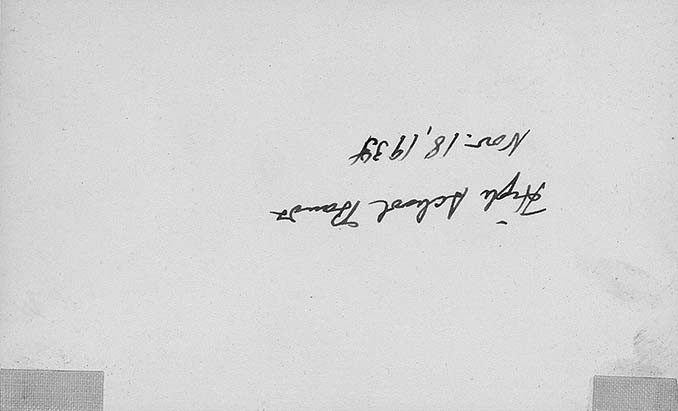 High School Band
Nov. 18, 1934